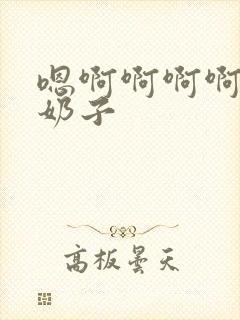 嗯啊啊啊啊
奶子
高板昙天